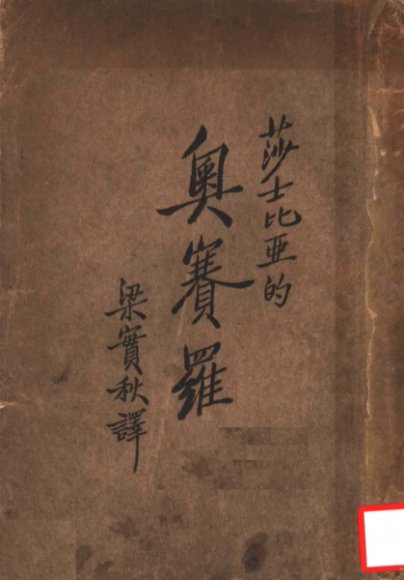 莎士比亜的
奥賽羅
梁實秋譯